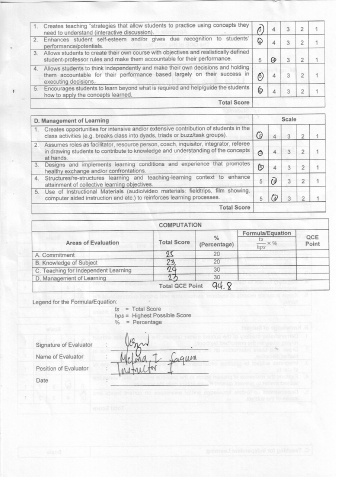 1. Creates teaching strategies that allow students to practice using concepts they need to understand (interactive discussion). 5 4 3 2 1
2. Enhances student self-esteem and/or gives due recognition to students' performance/potentials. 5 4 3 2 1
3. Allows students to create their own course with objectives and realistically defined student-professor rules and make them accountable for their performance. 5 4 3 2 1
4. Allows students to think independently and make their own decisions and holding them accountable for their performance based largely on their success in executing decisions. 5 4 3 2 1
5. Encourages students to learn beyond what is required and help/guide the students how to apply the concepts learned. 5 4 3 2 1
Total Score
D. Management of Learning Scale
1. Creates opportunities for intensive and/or extensive contribution of students in the class activities (e.g. breaks class into dyads, triads or buzz/task groups). 5 4 3 2 1
2. Assumes roles as facilitator, resource person, coach, inquisitor, integrator, referee in drawing students to contribute to knowledge and understanding of the concepts at hands. 5 4 3 2 1
3. Designs and implements learning conditions and experience that promotes healthy exchange and/or confrontations. 5 4 3 2 1
4. Structures/re-structures learning and teaching-learning context to enhance attainment of collective learning objectives. 5 4 3 2 1
5. Use of Instructional Materials (audio/video materials: fieldtrips, film showing, computer aided instruction and etc.) to reinforces learning processes. 5 4 3 2 1
Total Score
COMPUTATION
Areas of Evaluation Total Score % (Percentage) Formula/Equation ts/hps × % QCE Point
A. Commitment 25 20
B. Knowledge of Subject 23 20
C. Teaching for Independent Learning 24 30
D. Management of Learning 23 30
Total QCE Point 94.8
Legend for the Formula/Equation:
ts = Total Score
hps = Highest Possible Score
% = Percentage
Signature of Evaluator :
Name of Evaluator :
Position of Evaluator : Instructor I
Date :